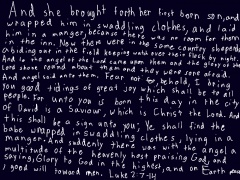 And she brought forth her first born son, and
wrapped him in swaddling clothes, and laid
him in a manger, because there was no room for them
in the inn. Now there were in the same country shepherds
abiding in the field keeping watch over their flock by night.
And lo the angel of the Lord came upon them and the glory of the
Lord shone round about them and they were sore afraid.
And angel said unto them, Fear not for, behold, I bring
you good tidings of great joy which shall be to all
people. For unto you is born this day in the city
of David is a Saviour, which is Christ the Lord. And
this shall be a sign unto you; Ye shall find the
babe wrapped in swaddling clothes, lying in a
manger. And suddenly there was with the angel a
multitude of the heavenly host praising God, and
saying, Glory to God in the highest, and on Earth peace
good will toward men. Luke 2:7-14